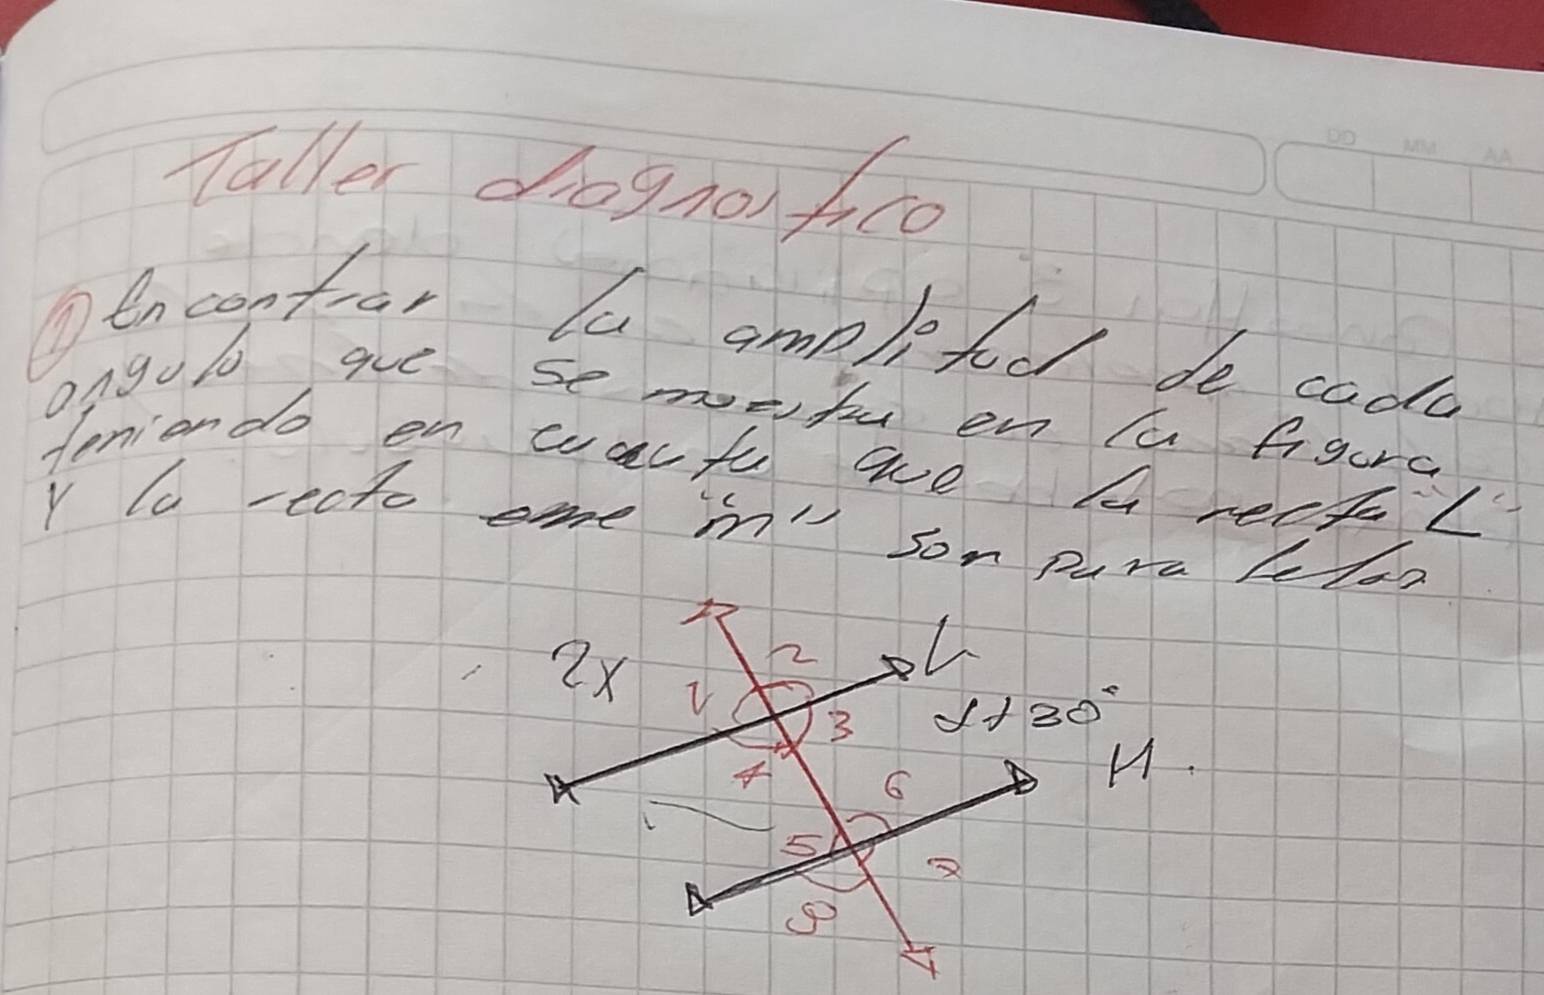 DD MM AA
Taller diagnostico
① Encontrar la amplitud de cada
angulo que se muestra en la figura
teniendo en cuenta que la recta "L"
Y la recta eme "m" son paralelas
2x
1
2
L
3
x+30°
4
M.
6
5
7
8